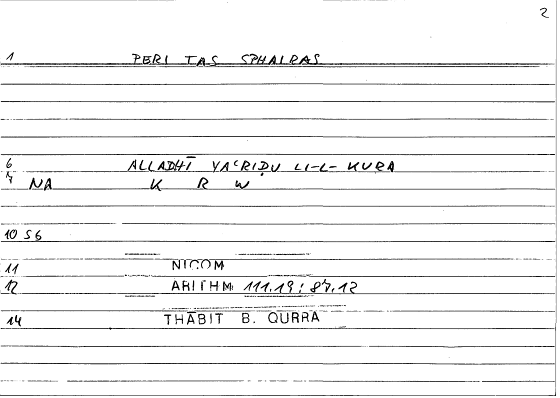 2
1 PERI TAS SPHAIRAS
6 ALLADHĪ YAʿRIḌU LI-L-KURA
7 NA K R W
10 56
11 NICOM
12 ARITHM 111.19; 87.12
14 THĀBIT B. QURRA